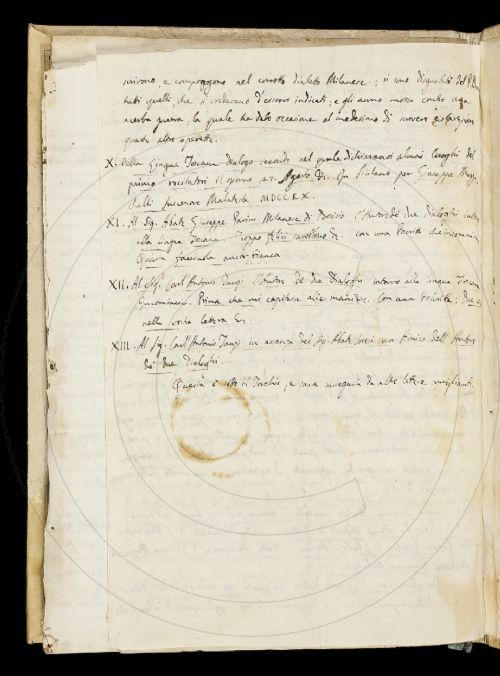 scrivono e compongono nel corrotto dialetto Milanese; si sono disgustati del P.
tutti quelli che si credevano d'essere indicati; e gli anno mosso contro una
acerba guerra, la quale ha dato occasione al medesimo di scrivere
queste altre operette.
X. Della Lingua Toscana Dialogo secondo nel quale dichiaransi alcuni luoghi del
primo recitatosi il giorno 27. Agosto &c. In Milano per Giuseppe
successore Malatesta MDCCLX.
XI. Al Sig. Abate Giuseppe Parini Milanese di Bosisio l'Autore de' due Dialoghi
alla Lingua Toscana. Troppo con una Novità che incomincia
Questa facciata ancor bianca
XII. Al Sig. Carl'Antonio Tanzi l'Autore de' due Dialoghi intorno alla Lingua Toscana
Incomincia. Prima che mi capitasse alle mani &c. Con una Novità;
nella vostra lettera &c.
XIII. Al Sig. Carl'Antonio Tanzi in assenza del Sig. Abate un Amico dell'Autore
de' due Dialoghi.
Questa è sotto il Torchio, e sarà seguita da altre lettere